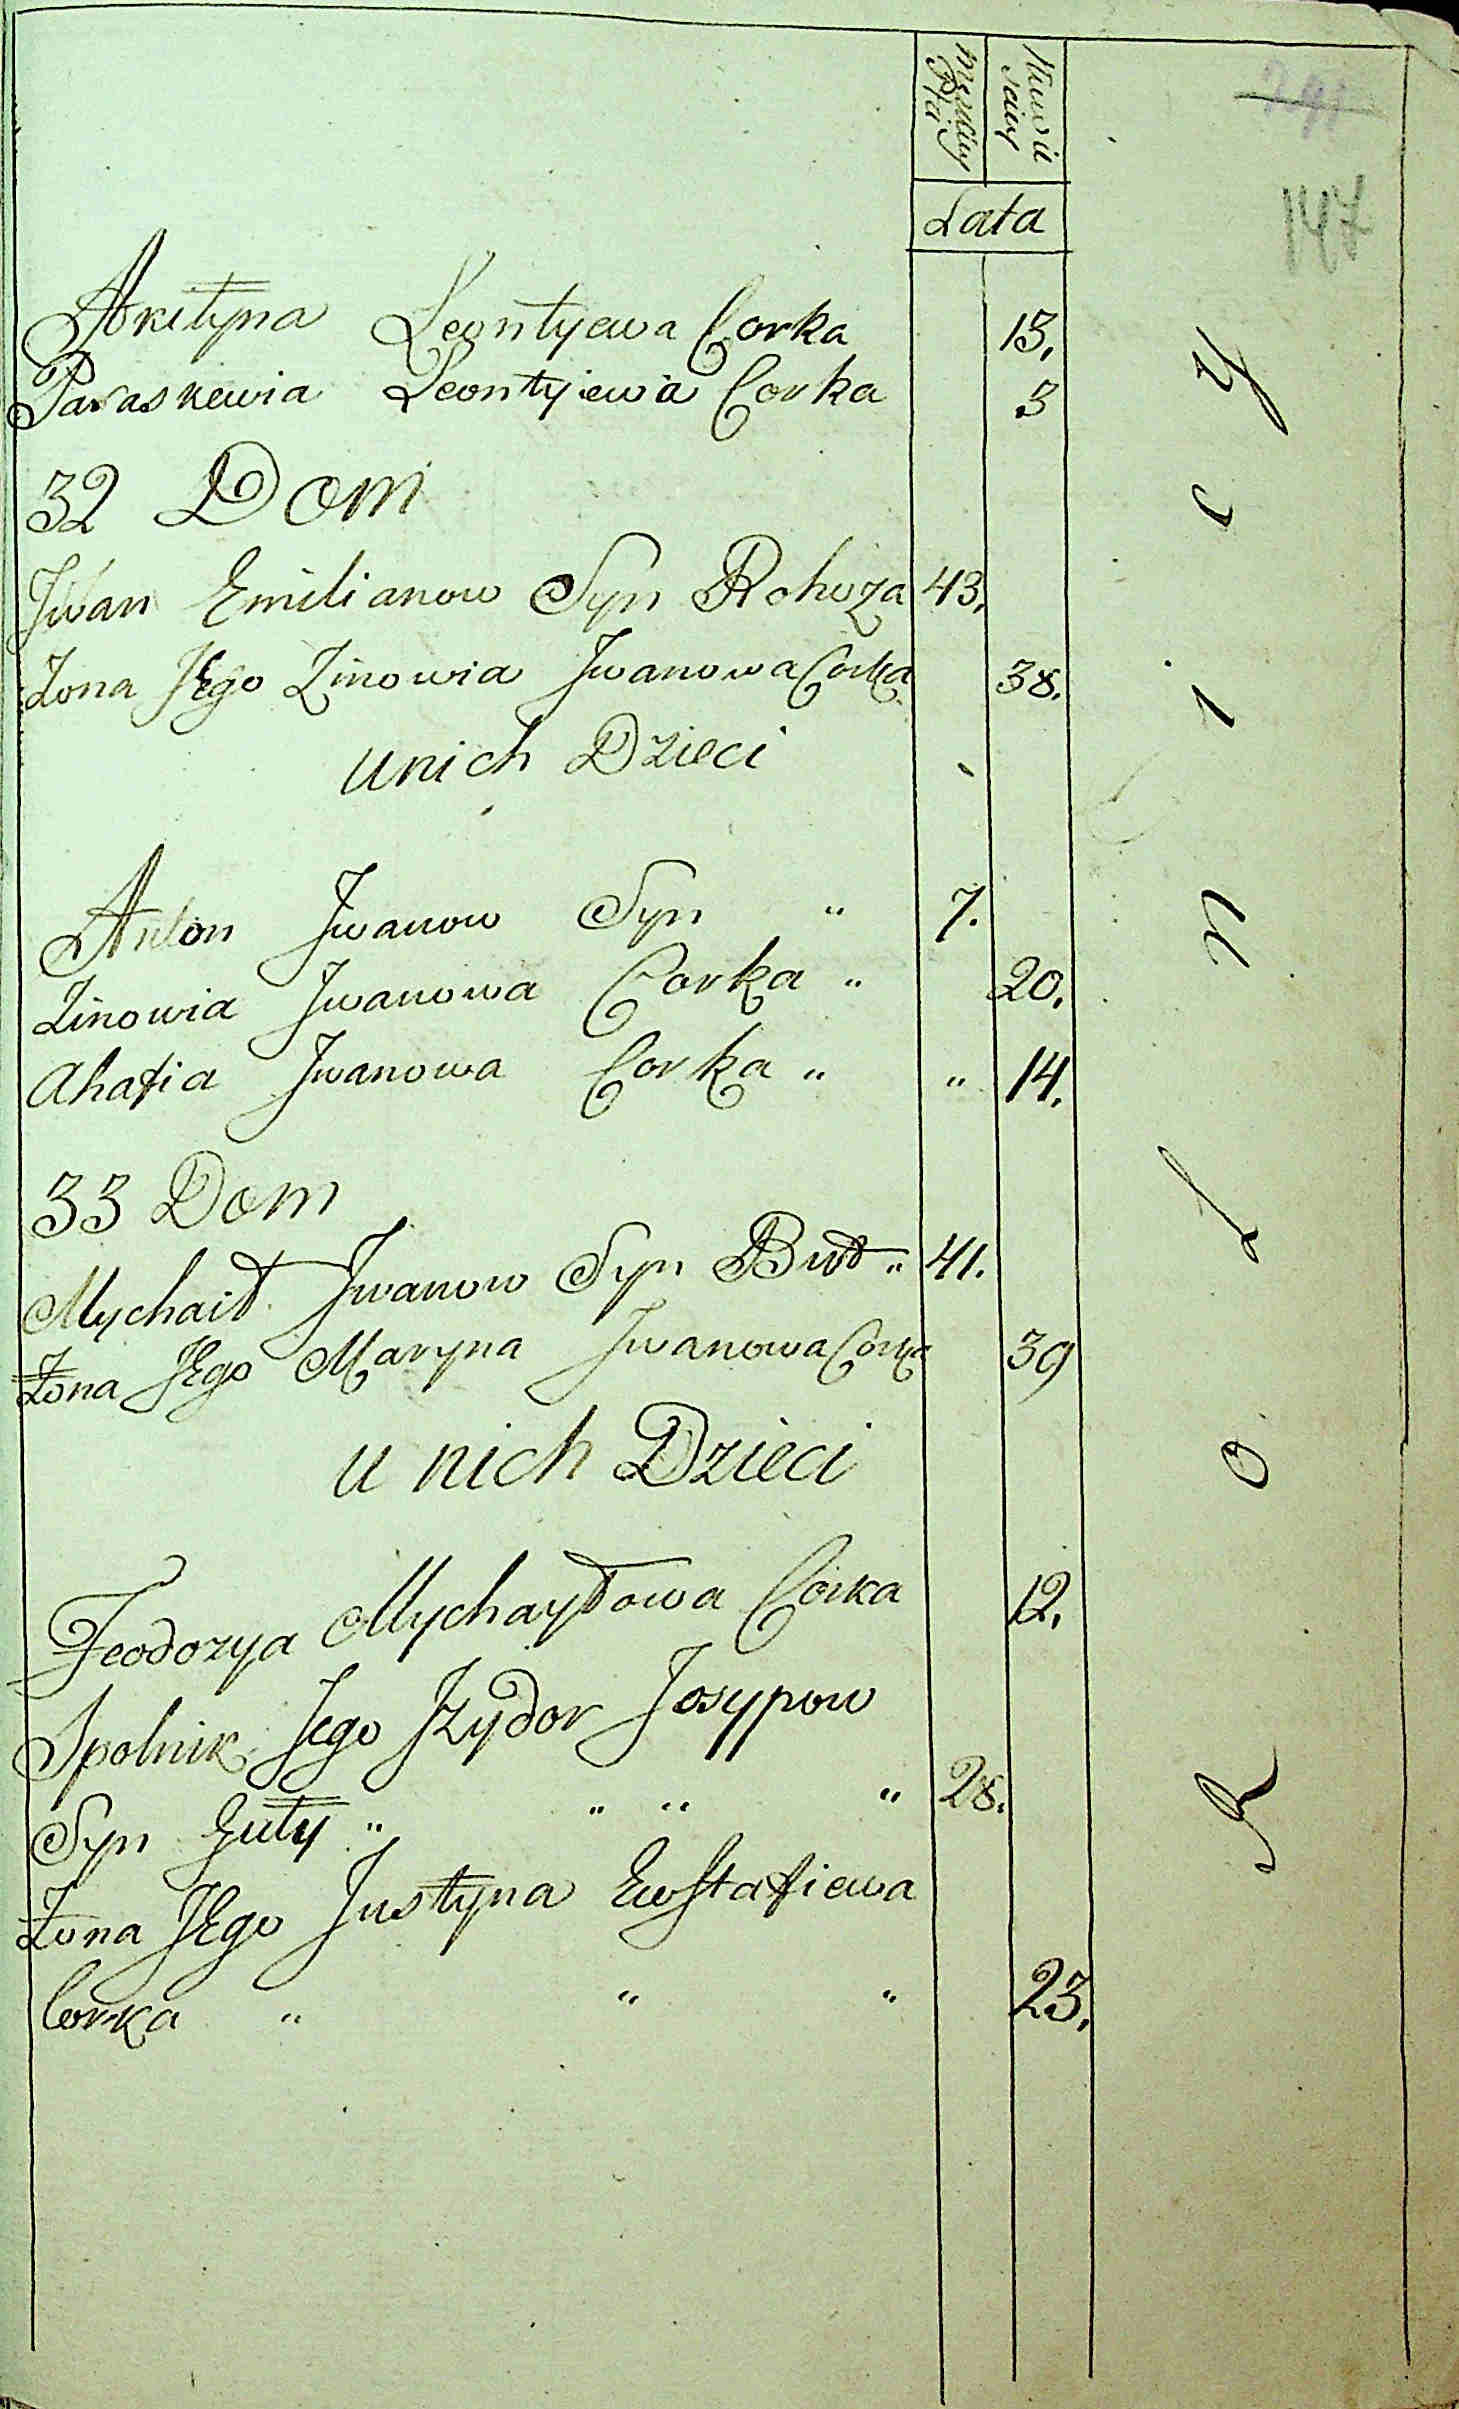 Męskiey Płci
Lata
147
Akilyna Leontyewa Corka 13.
Paraskewia Leontyiewa Corka 3
32 Dom
Jwan Emilianow Syn Rohoza 43.
Zona JEgo Zinowia Jwanowa Corka 38.
unich Dzieci
Anton Jwanow Syn " 7.
Zinowia Jwanowa Corka " 20.
Ahafia Jwanowa Corka " " 14.
33 Dom
Mychaił Jwanow Syn But " 41.
Zona JEgo Maryna Jwanowa Corka 39
u nich Dzieci
Feodozya Mychayłowa Corka 12.
Spolnik Jego Jzydor Josypow
Syn " " " " 28.
Zona JEgo Justyna Ewstafiewa
Corka " " " 23.
Rolnicy